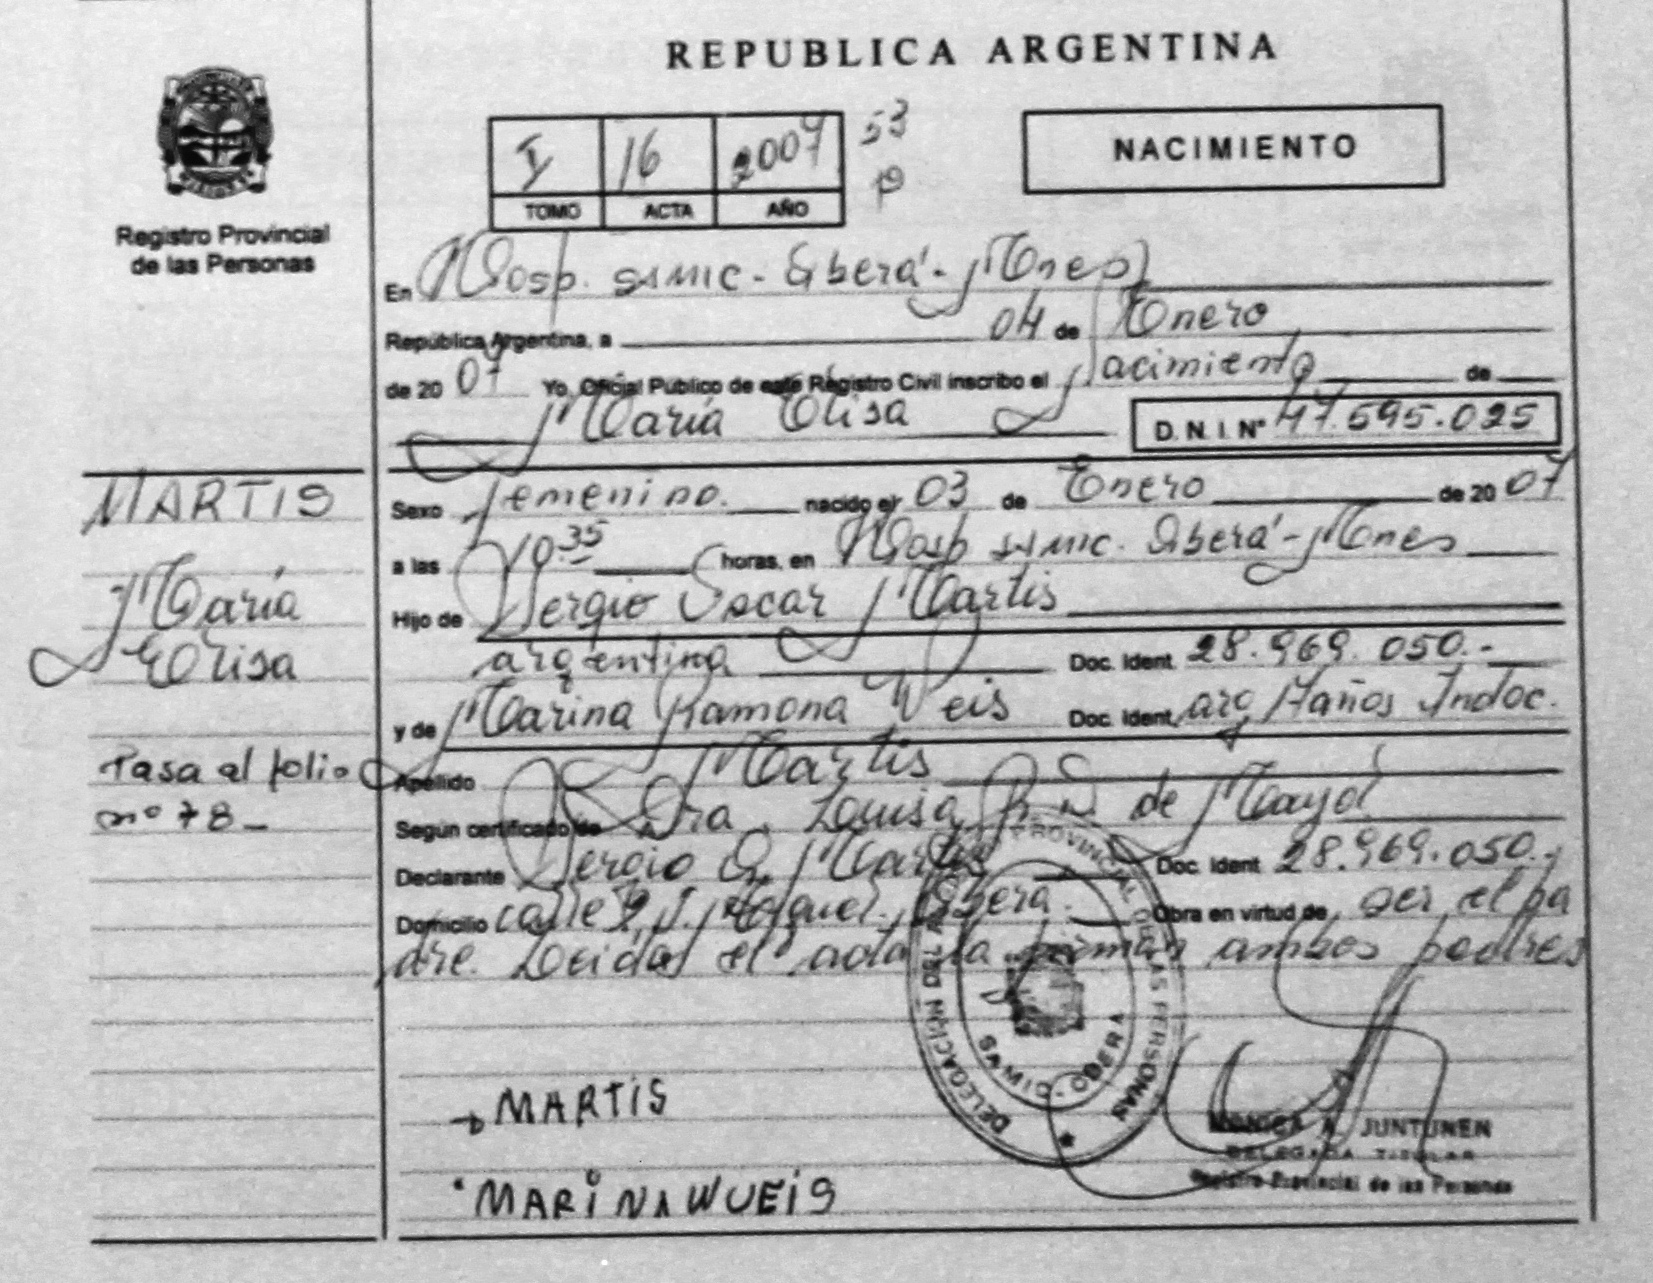 REPUBLICA ARGENTINA
I 16 2007 53
TOMO ACTA AÑO
NACIMIENTO
Registro Provincial
de las Personas
En Hosp. SAMIC - Oberá - Mnes
República Argentina, a 04 de Enero
de 20 07 Yo, Oficial Público de este Registro Civil inscribo el Nacimiento de
María Elisa D.N.I. Nº 47.595.025
MARTIS
María
Elisa
Pasa al folio
nº 78 -
Sexo femenino. nacido el 03 de Enero de 20 07
a las 10.35 horas, en Hosp SAMIC. Oberá - Mnes
Hijo de Sergio Oscar Martis
argentina Doc. Ident. 28.969.050.-
y de Marina Ramona Weis Doc. Ident. arg 17 años Indoc.
Apellido Martis
Según certificado de Dra. Louisa de Mayol
Declarante Sergio O. Martis Doc. Ident 28.969.050.-
Domicilio calle Oberá. Obra en virtud de ser el pa
dre. Leida el acta la firman ambos padres
DELEGACION DEL PROVINCIAL DE LAS PERSONAS
SAMIC - OBERA
MARTIS
MARINA WUEIS
MONICA A. JUNTUNEN
DELEGADA TITULAR
Registro Provincial de las Personas